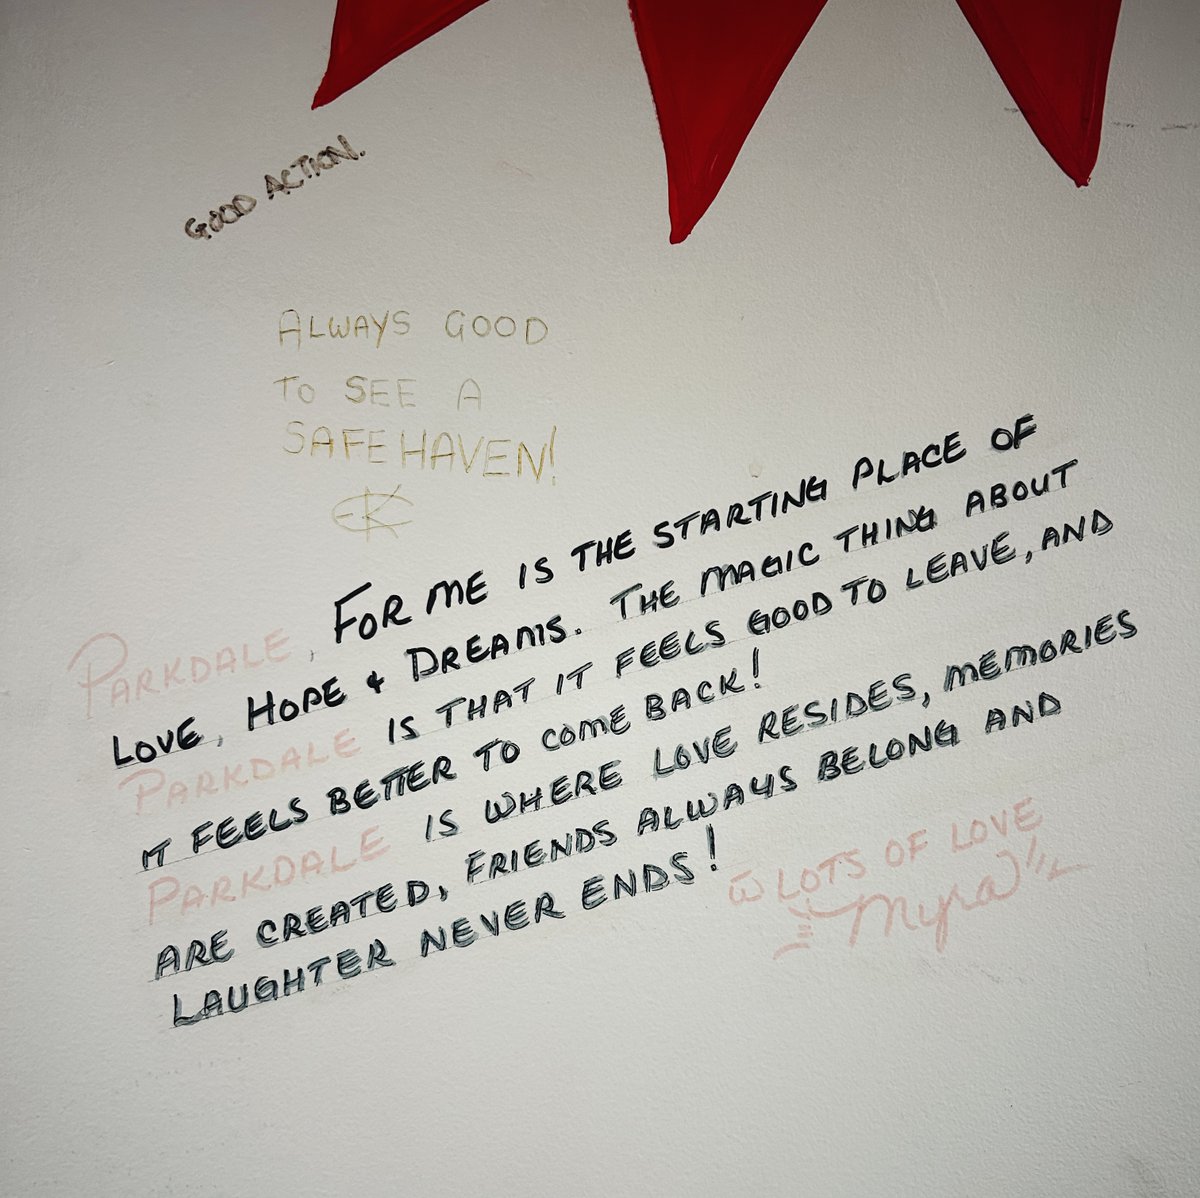 GOOD ACTION.
ALWAYS GOOD
TO SEE A
SAFE HAVEN!
EK
PARKDALE, FOR ME IS THE STARTING PLACE OF
LOVE, HOPE & DREAMS. THE MAGIC THING ABOUT
PARKDALE IS THAT IT FEELS GOOD TO LEAVE, AND
IT FEELS BETTER TO COME BACK!
PARKDALE IS WHERE LOVE RESIDES, MEMORIES
ARE CREATED, FRIENDS ALWAYS BELONG AND
LAUGHTER NEVER ENDS!
W LOTS OF LOVE
Myra